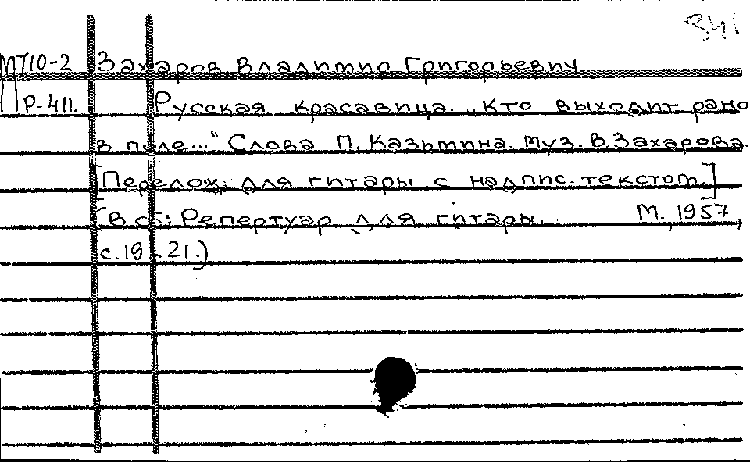 341
МТ10-2 Захаров Владимир Григорьевич
Р-411. Русская красавица. „Кто выходит рано
в поле..." Слова П. Казьмина. Муз. В. Захарова.
[Перелож. для гитары с надпис. текстом.]
(В сб: Репертуар для гитары. М., 1957,
с. 19-21.)